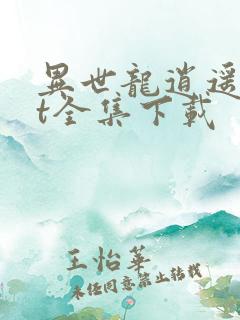 異世龍逍遥
t全集下载
王怡華
未经同意禁止转载